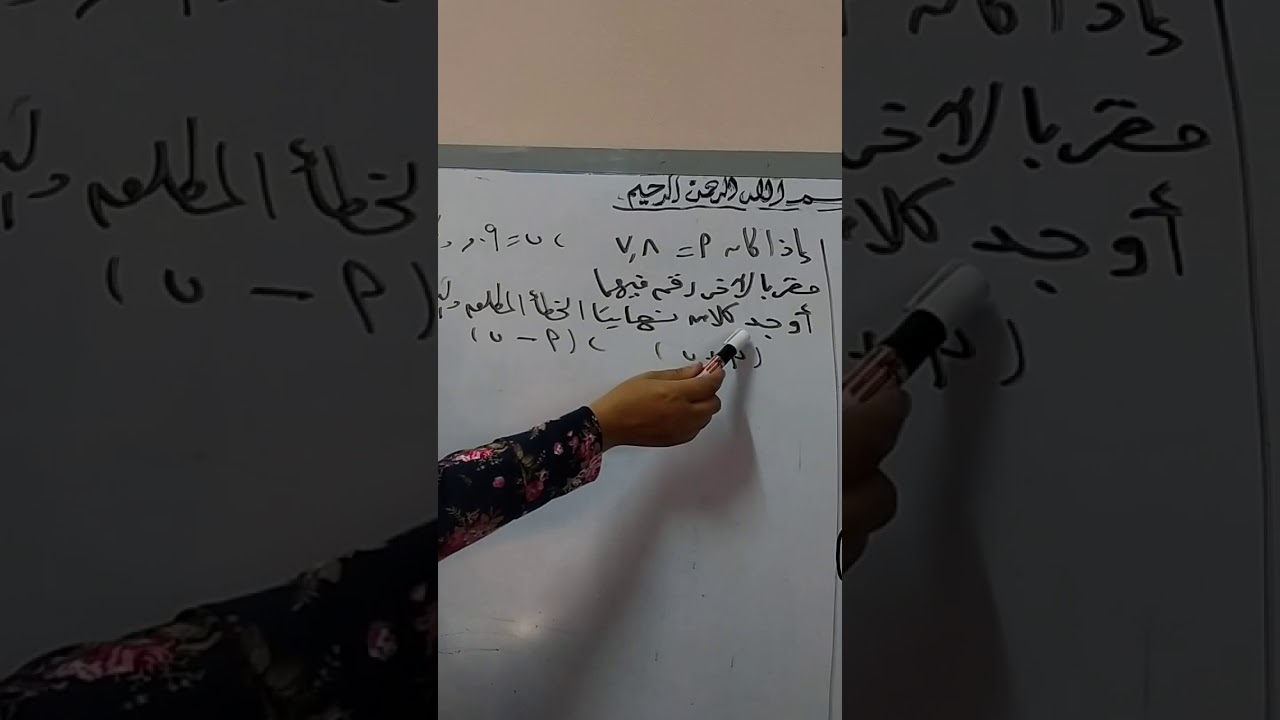 بسم الله الرحمن الرحيم
إذا كان م = ٧,٨ ، ن = ٠,٩
مقربا لآخر رقم فيهما
أوجد كلا من نهايتا الخطأ المطلق
(م + ن) ، (م – ن)